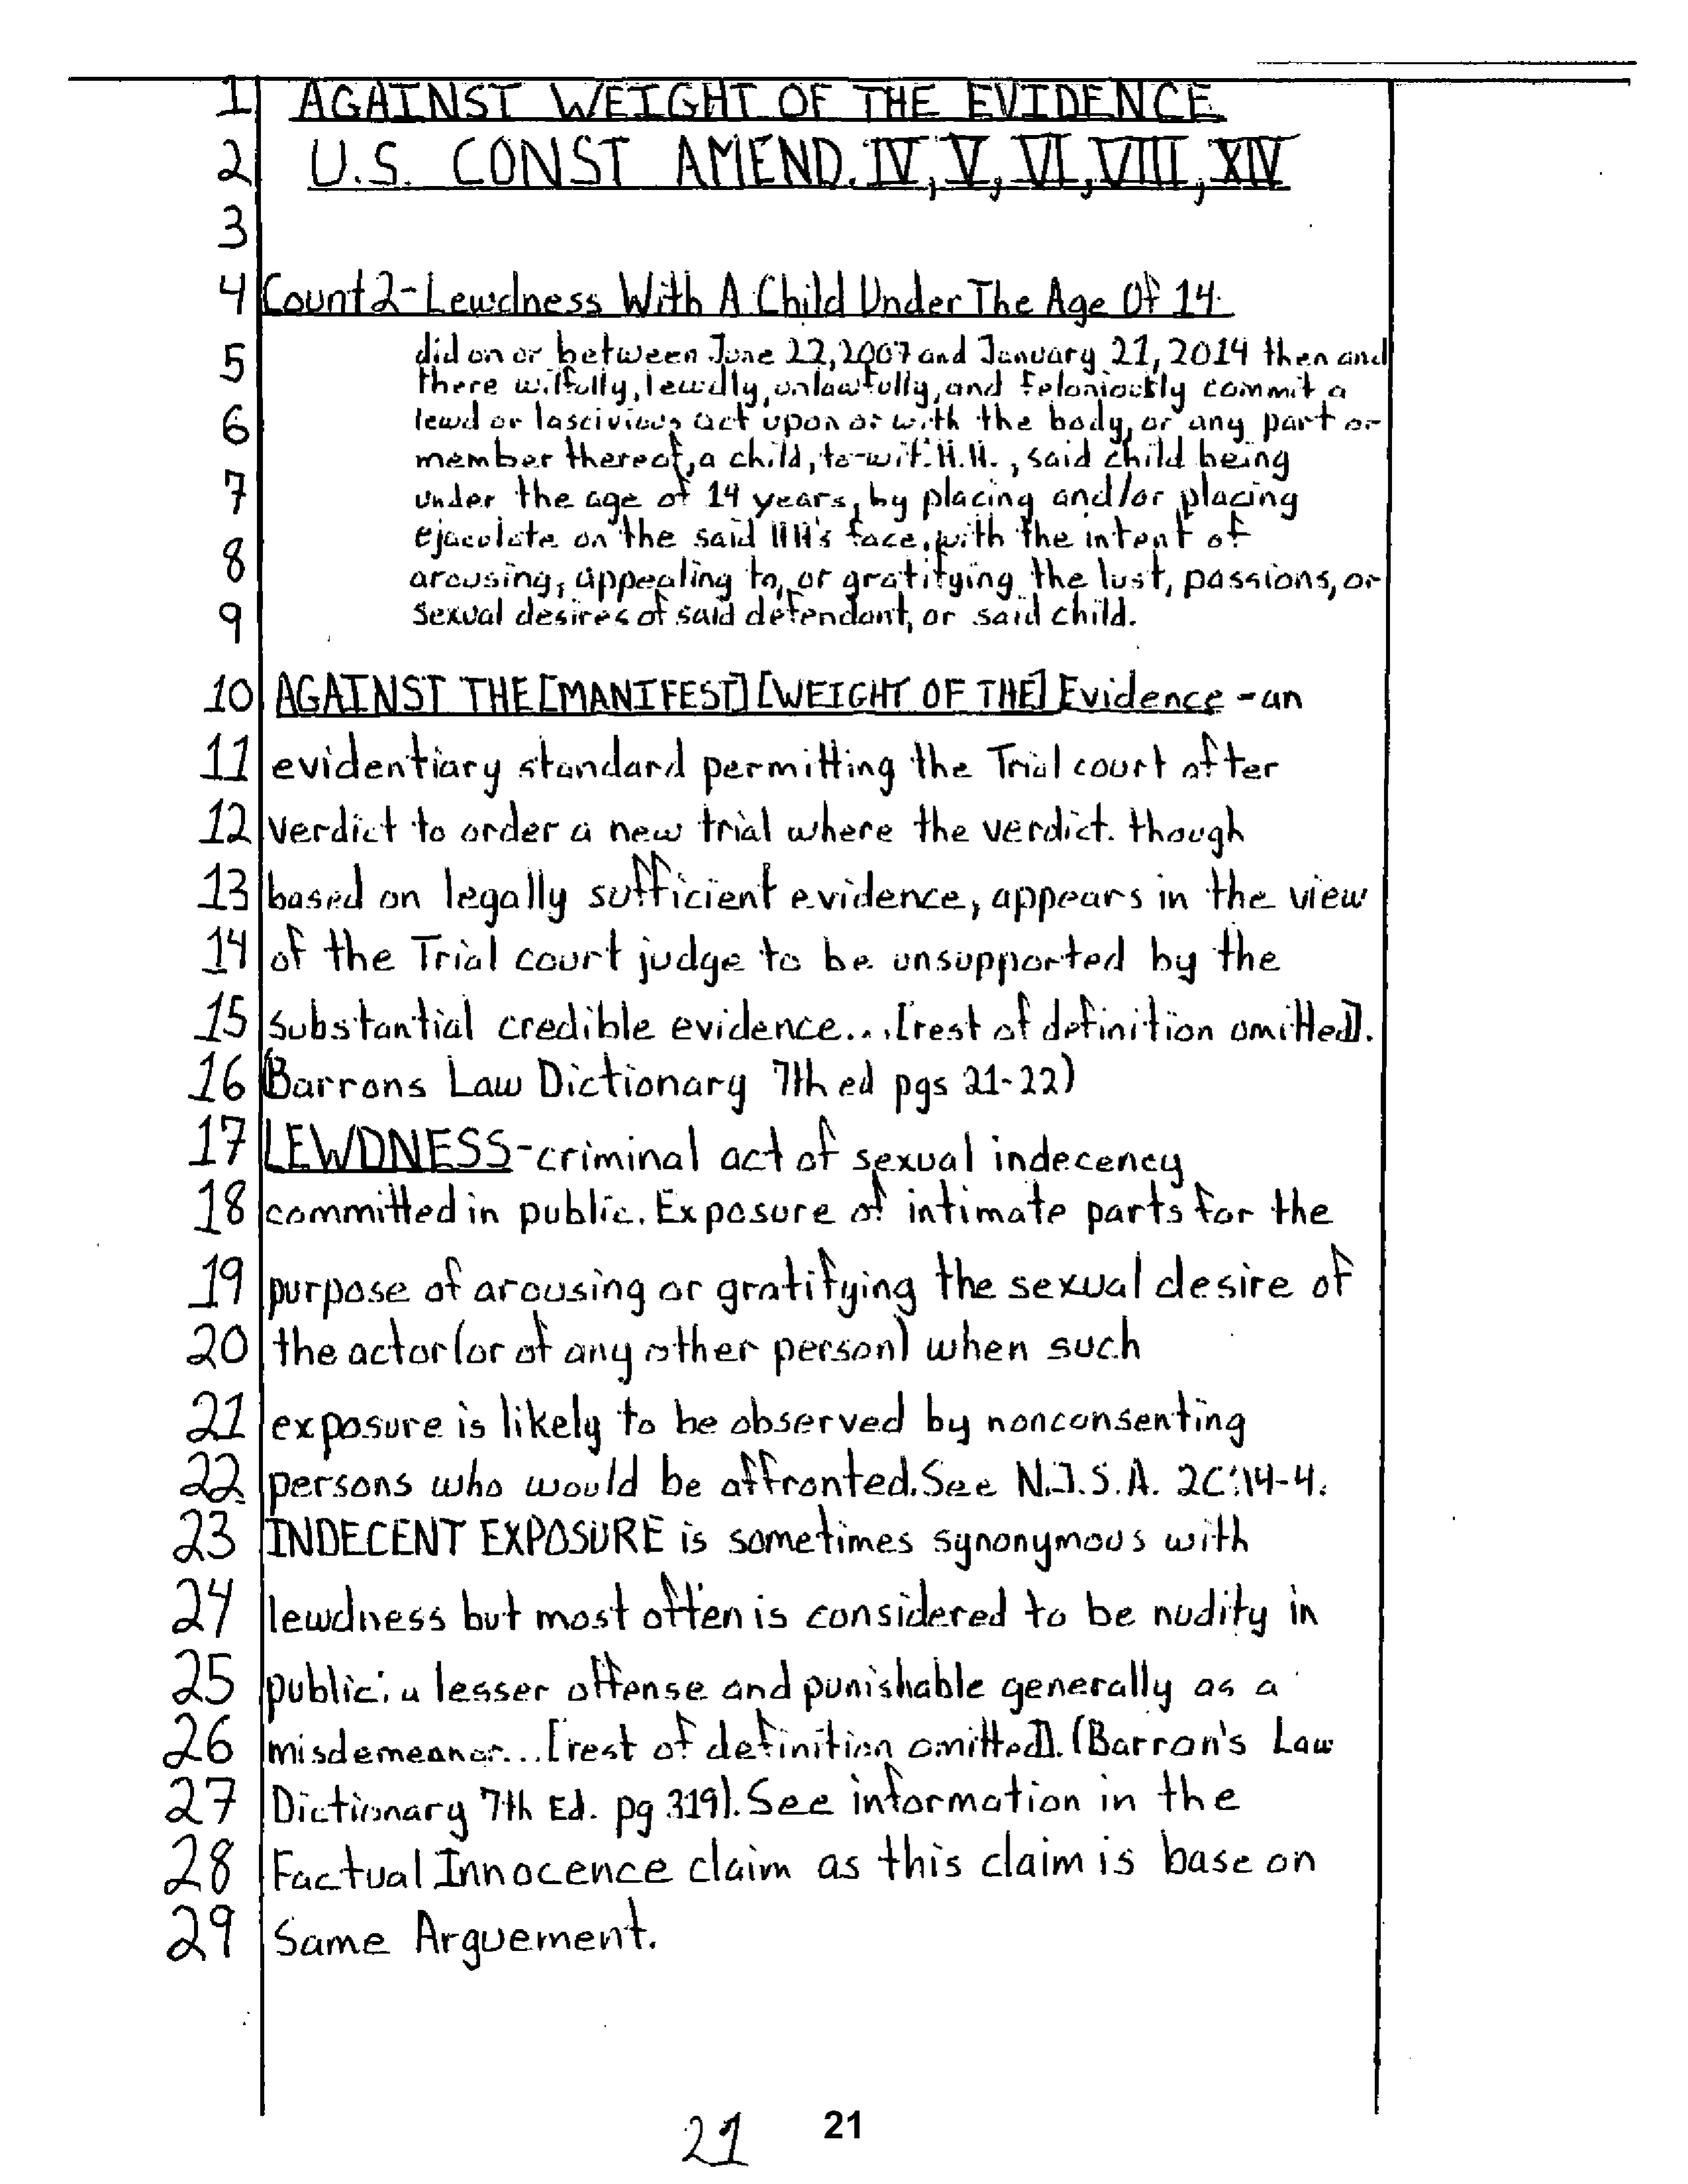 1 AGAINST WEIGHT OF THE EVIDENCE
2 U.S. CONST AMEND. IV, V, VI, VIII, XIV
3
4 Count 2 - Lewdness With A Child Under The Age Of 14.
5 did on or between June 22, 2007 and January 21, 2014 then and
there wilfully, lewdly, unlawfully, and feloniously commit a
6 lewd or lascivious act upon or with the body, or any part or
member thereof, a child, to-wit: H.H., said child being
7 under the age of 14 years, by placing and/or placing
ejaculate on the said HH's face, with the intent of
8 arousing, appealing to, or gratifying the lust, passions, or
9 sexual desires of said defendant, or said child.
10 AGAINST THE [MANIFEST] [WEIGHT OF THE] Evidence - an
11 evidentiary standard permitting the Trial court after
12 verdict to order a new trial where the verdict. though
13 based on legally sufficient evidence, appears in the view
14 of the Trial court judge to be unsupported by the
15 substantial credible evidence... [rest of definition omitted].
16 (Barrons Law Dictionary 7th ed pgs 21-22)
17 LEWDNESS - criminal act of sexual indecency
18 committed in public. Exposure of intimate parts for the
19 purpose of arousing or gratifying the sexual desire of
20 the actor (or of any other person) when such
21 exposure is likely to be observed by nonconsenting
22 persons who would be affronted. See N.J.S.A. 2C:14-4.
23 INDECENT EXPOSURE is sometimes synonymous with
24 lewdness but most often is considered to be nudity in
25 public: a lesser offense and punishable generally as a
26 misdemeanor... [rest of definition omitted]. (Barron's Law
27 Dictionary 7th Ed. pg 319). See information in the
28 Factual Innocence claim as this claim is base on
29 Same Arguement.
21 21